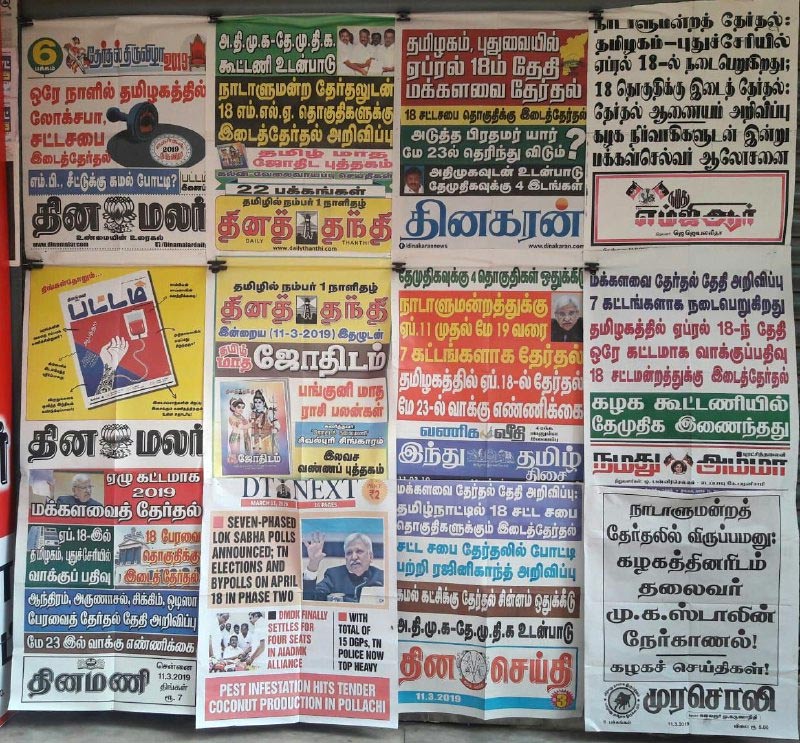 6
பக்கம்
தேர்தல் திருவிழா 2019
ஒரே நாளில் தமிழகத்தில்
லோக்சபா,
சட்டசபை
இடைத்தேர்தல்
2019
எம்.பி., சீட்டுக்கு கமல் போட்டி?
பட்டம்
தின மலர்
உண்மையின் உரைகல்
www.dinamalar.com
/Dinamalardaily
அ.தி.மு.க-தே.மு.தி.க.
கூட்டணி உடன்பாடு
நாடாளுமன்ற தேர்தலுடன்
18 எம்.எல்.ஏ. தொகுதிகளுக்கு
இடைத்தேர்தல் அறிவிப்பு
தமிழ் மாத
ஜோதிட புத்தகம்
கல்வி-வேலைவாய்ப்பு செய்திகள்
22 பக்கங்கள்
தமிழில் நம்பர் 1 நாளிதழ்
தினத் தந்தி
DAILY THANTHI
www.dailythanthi.com
தமிழகம், புதுவையில்
ஏப்ரல் 18ம் தேதி
மக்களவை தேர்தல்
18 சட்டசபை தொகுதிக்கு இடைத்தேர்தல்
அடுத்த பிரதமர் யார்
மே 23ல் தெரிந்து விடும்?
அதிமுகவுடன் உடன்பாடு
தேமுதிகவுக்கு 4 இடங்கள்
தினகரன்
dinakarannews
www.dinakaran.com
நாடாளுமன்றத் தேர்தல்:
தமிழகம்-புதுச்சேரியில்
ஏப்ரல் 18-ல் நடைபெறுகிறது;
18 தொகுதிக்கு இடைத் தேர்தல்:
தேர்தல் ஆணையம் அறிவிப்பு
கழக நிர்வாகிகளுடன் இன்று
மக்கள்செல்வர் ஆலோசனை
நமது
எம்ஜிஆர்
ஜெ.ஜெயலலிதா
திங்கள்தோறும்...
பட்டம்
தின மலர்
ஏழு கட்டமாக
2019
மக்களவைத் தேர்தல்
ஏப். 18-இல்
தமிழகம், புதுச்சேரியில்
வாக்குப் பதிவு
18 பேரவை
தொகுதிக்கு
இடைத்தேர்தல்
ஆந்திரம், அருணாசல், சிக்கிம், ஒடிஸா
பேரவைத் தேர்தல் தேதி அறிவிப்பு
மே 23 இல் வாக்கு எண்ணிக்கை
தினமணி
சென்னை
11.3.2019
திங்கள்
ரூ. 7
தமிழில் நம்பர் 1 நாளிதழ்
தினத் தந்தி
DAILY THANTHI
இன்றைய (11-3-2019) இதழுடன்
தமிழ் மாத
ஜோதிடம்
பங்குனி மாத
ராசி பலன்கள்
சிவல்புரி சிங்காரம்
இலவச
வண்ணப் புத்தகம்
ஜோதிடம்
DT NEXT
MARCH 11, 2019
16 PAGES
₹2
SEVEN-PHASED
LOK SABHA POLLS
ANNOUNCED; TN
ELECTIONS AND
BYPOLLS ON APRIL
18 IN PHASE TWO
DMDK FINALLY
SETTLES FOR
FOUR SEATS
IN AIADMK
ALLIANCE
WITH
TOTAL OF
15 DGPS, TN
POLICE NOW
TOP HEAVY
PEST INFESTATION HITS TENDER
COCONUT PRODUCTION IN POLLACHI
தேமுதிகவுக்கு 4 தொகுதிகள் ஒதுக்கீடு
நாடாளுமன்றத்துக்கு
ஏப்.11 முதல் மே 19 வரை
7 கட்டங்களாக தேர்தல்
தமிழகத்தில் ஏப்.18-ல் தேர்தல்
மே 23-ல் வாக்கு எண்ணிக்கை
வணிக வீதி
இந்து தமிழ்
திசை
11.03.19
மக்களவை தேர்தல் தேதி அறிவிப்பு:
தமிழ்நாட்டில் 18 சட்ட சபை
தொகுதிகளுக்கும் இடைத்தேர்தல்
சட்ட சபை தேர்தலில் போட்டி
பற்றி ரஜினிகாந்த் அறிவிப்பு
கமல் கட்சிக்கு தேர்தல் சின்னம் ஒதுக்கீடு
அ.தி.மு.க-தே.மு.தி.க உடன்பாடு
தின செய்தி
11.3.2019
3
மக்களவை தேர்தல் தேதி அறிவிப்பு
7 கட்டங்களாக நடைபெறுகிறது
தமிழகத்தில் ஏப்ரல் 18-ந் தேதி
ஒரே கட்டமாக வாக்குப்பதிவு
18 சட்டமன்றத்துக்கு இடைத்தேர்தல்
கழக கூட்டணியில்
தேமுதிக இணைந்தது
நமது அம்மா
நாடாளுமன்றத்
தேர்தலில் விருப்பமனு:
கழகத்தினரிடம்
தலைவர்
மு.க.ஸ்டாலின்
நேர்காணல்!
கழகச் செய்திகள்!
முரசொலி
11.3.2019